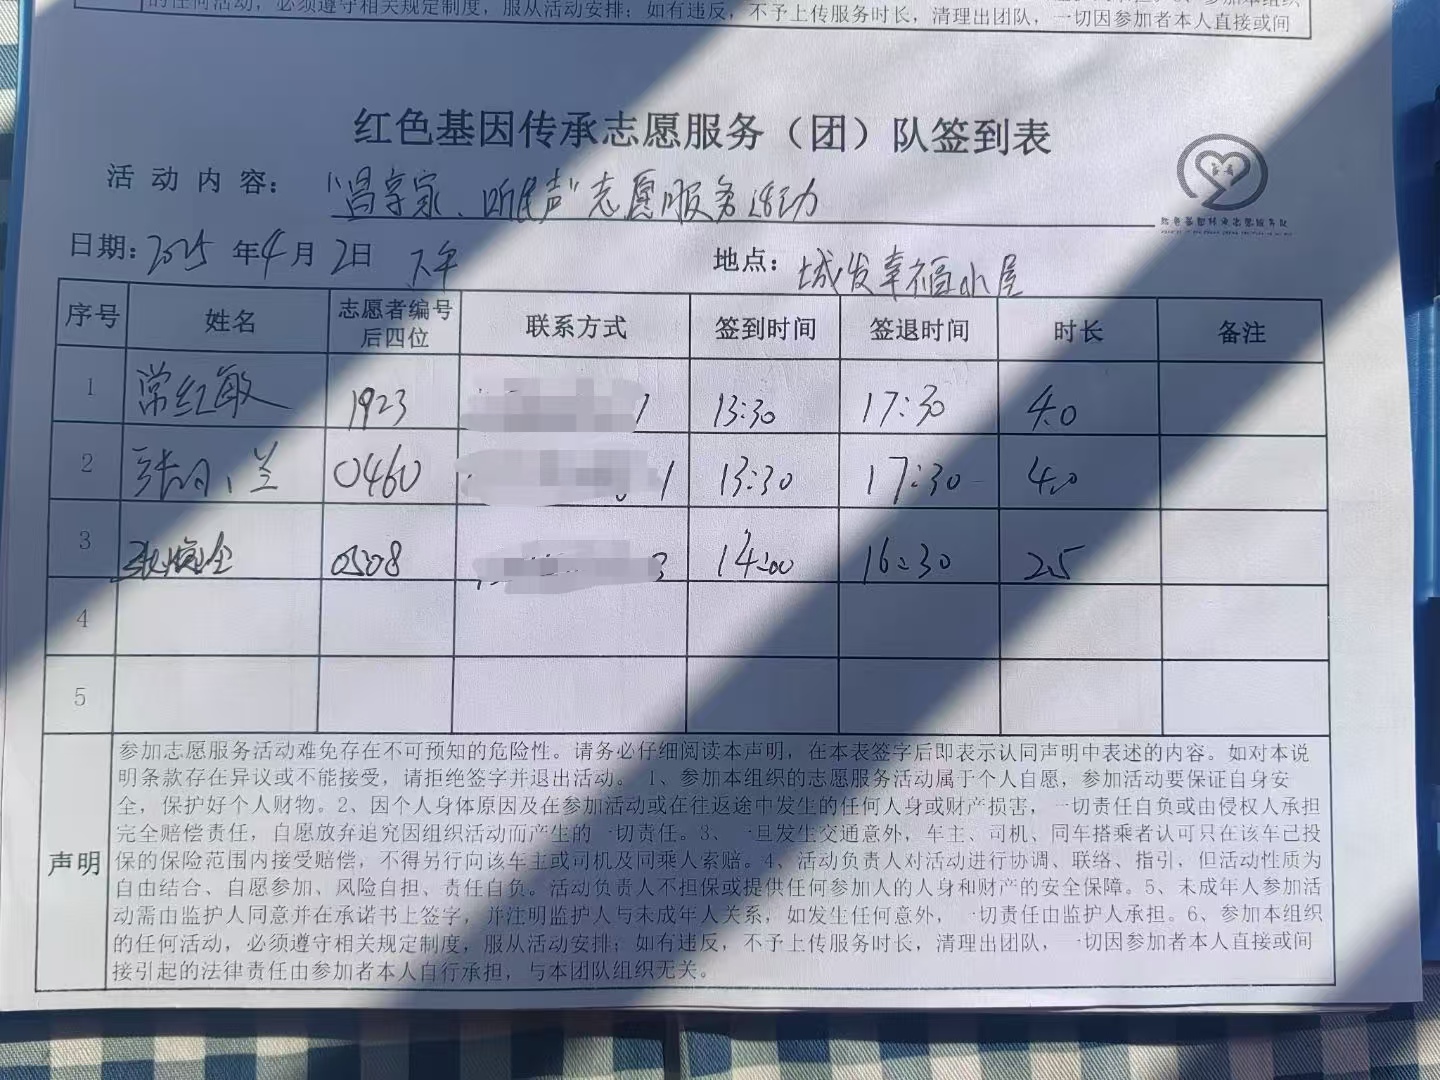 的任何活动，必须遵守相关规定制度，服从活动安排；如有违反，不予上传服务时长，清理出团队，一切因参加者本人直接或间
红色基因传承志愿服务（团）队签到表
活动内容： “温享家、听民声”志愿服务活动
日期：2025年4月2日 下午 地点：城发幸福小屋
序号 姓名 志愿者编号后四位 联系方式 签到时间 签退时间 时长 备注
1 常红敏 1923 1 13:30 17:30 4.0
2 张小兰 0460 1 13:30 17:30 4.0
3 0508 3 14:00 16:30 2.5
4
5
声明
参加志愿服务活动难免存在不可预知的危险性。请务必仔细阅读本声明，在本表签字后即表示认同声明中表述的内容。如对本说
明条款存在异议或不能接受，请拒绝签字并退出活动。 1、参加本组织的志愿服务活动属于个人自愿，参加活动要保证自身安
全，保护好个人财物。2、因个人身体原因及在参加活动或在往返途中发生的任何人身或财产损害，一切责任自负或由侵权人承担
完全赔偿责任，自愿放弃追究因组织活动而产生的一切责任。3、一旦发生交通意外，车主、司机、同车搭乘者认可只在该车已投
保的保险范围内接受赔偿，不得另行向该车车主或司机及同乘人索赔。4、活动负责人对活动进行协调、联络、指引，但活动性质为
自由结合、自愿参加、风险自担、责任自负。活动负责人不担保或提供任何参加人的人身和财产的安全保障。5、未成年人参加活
动需由监护人同意并在承诺书上签字，并注明监护人与未成年人关系，如发生任何意外，一切责任由监护人承担。6、参加本组织
的任何活动，必须遵守相关规定制度，服从活动安排；如有违反，不予上传服务时长，清理出团队，一切因参加者本人直接或间
接引起的法律责任由参加者本人自行承担，与本团队组织无关。